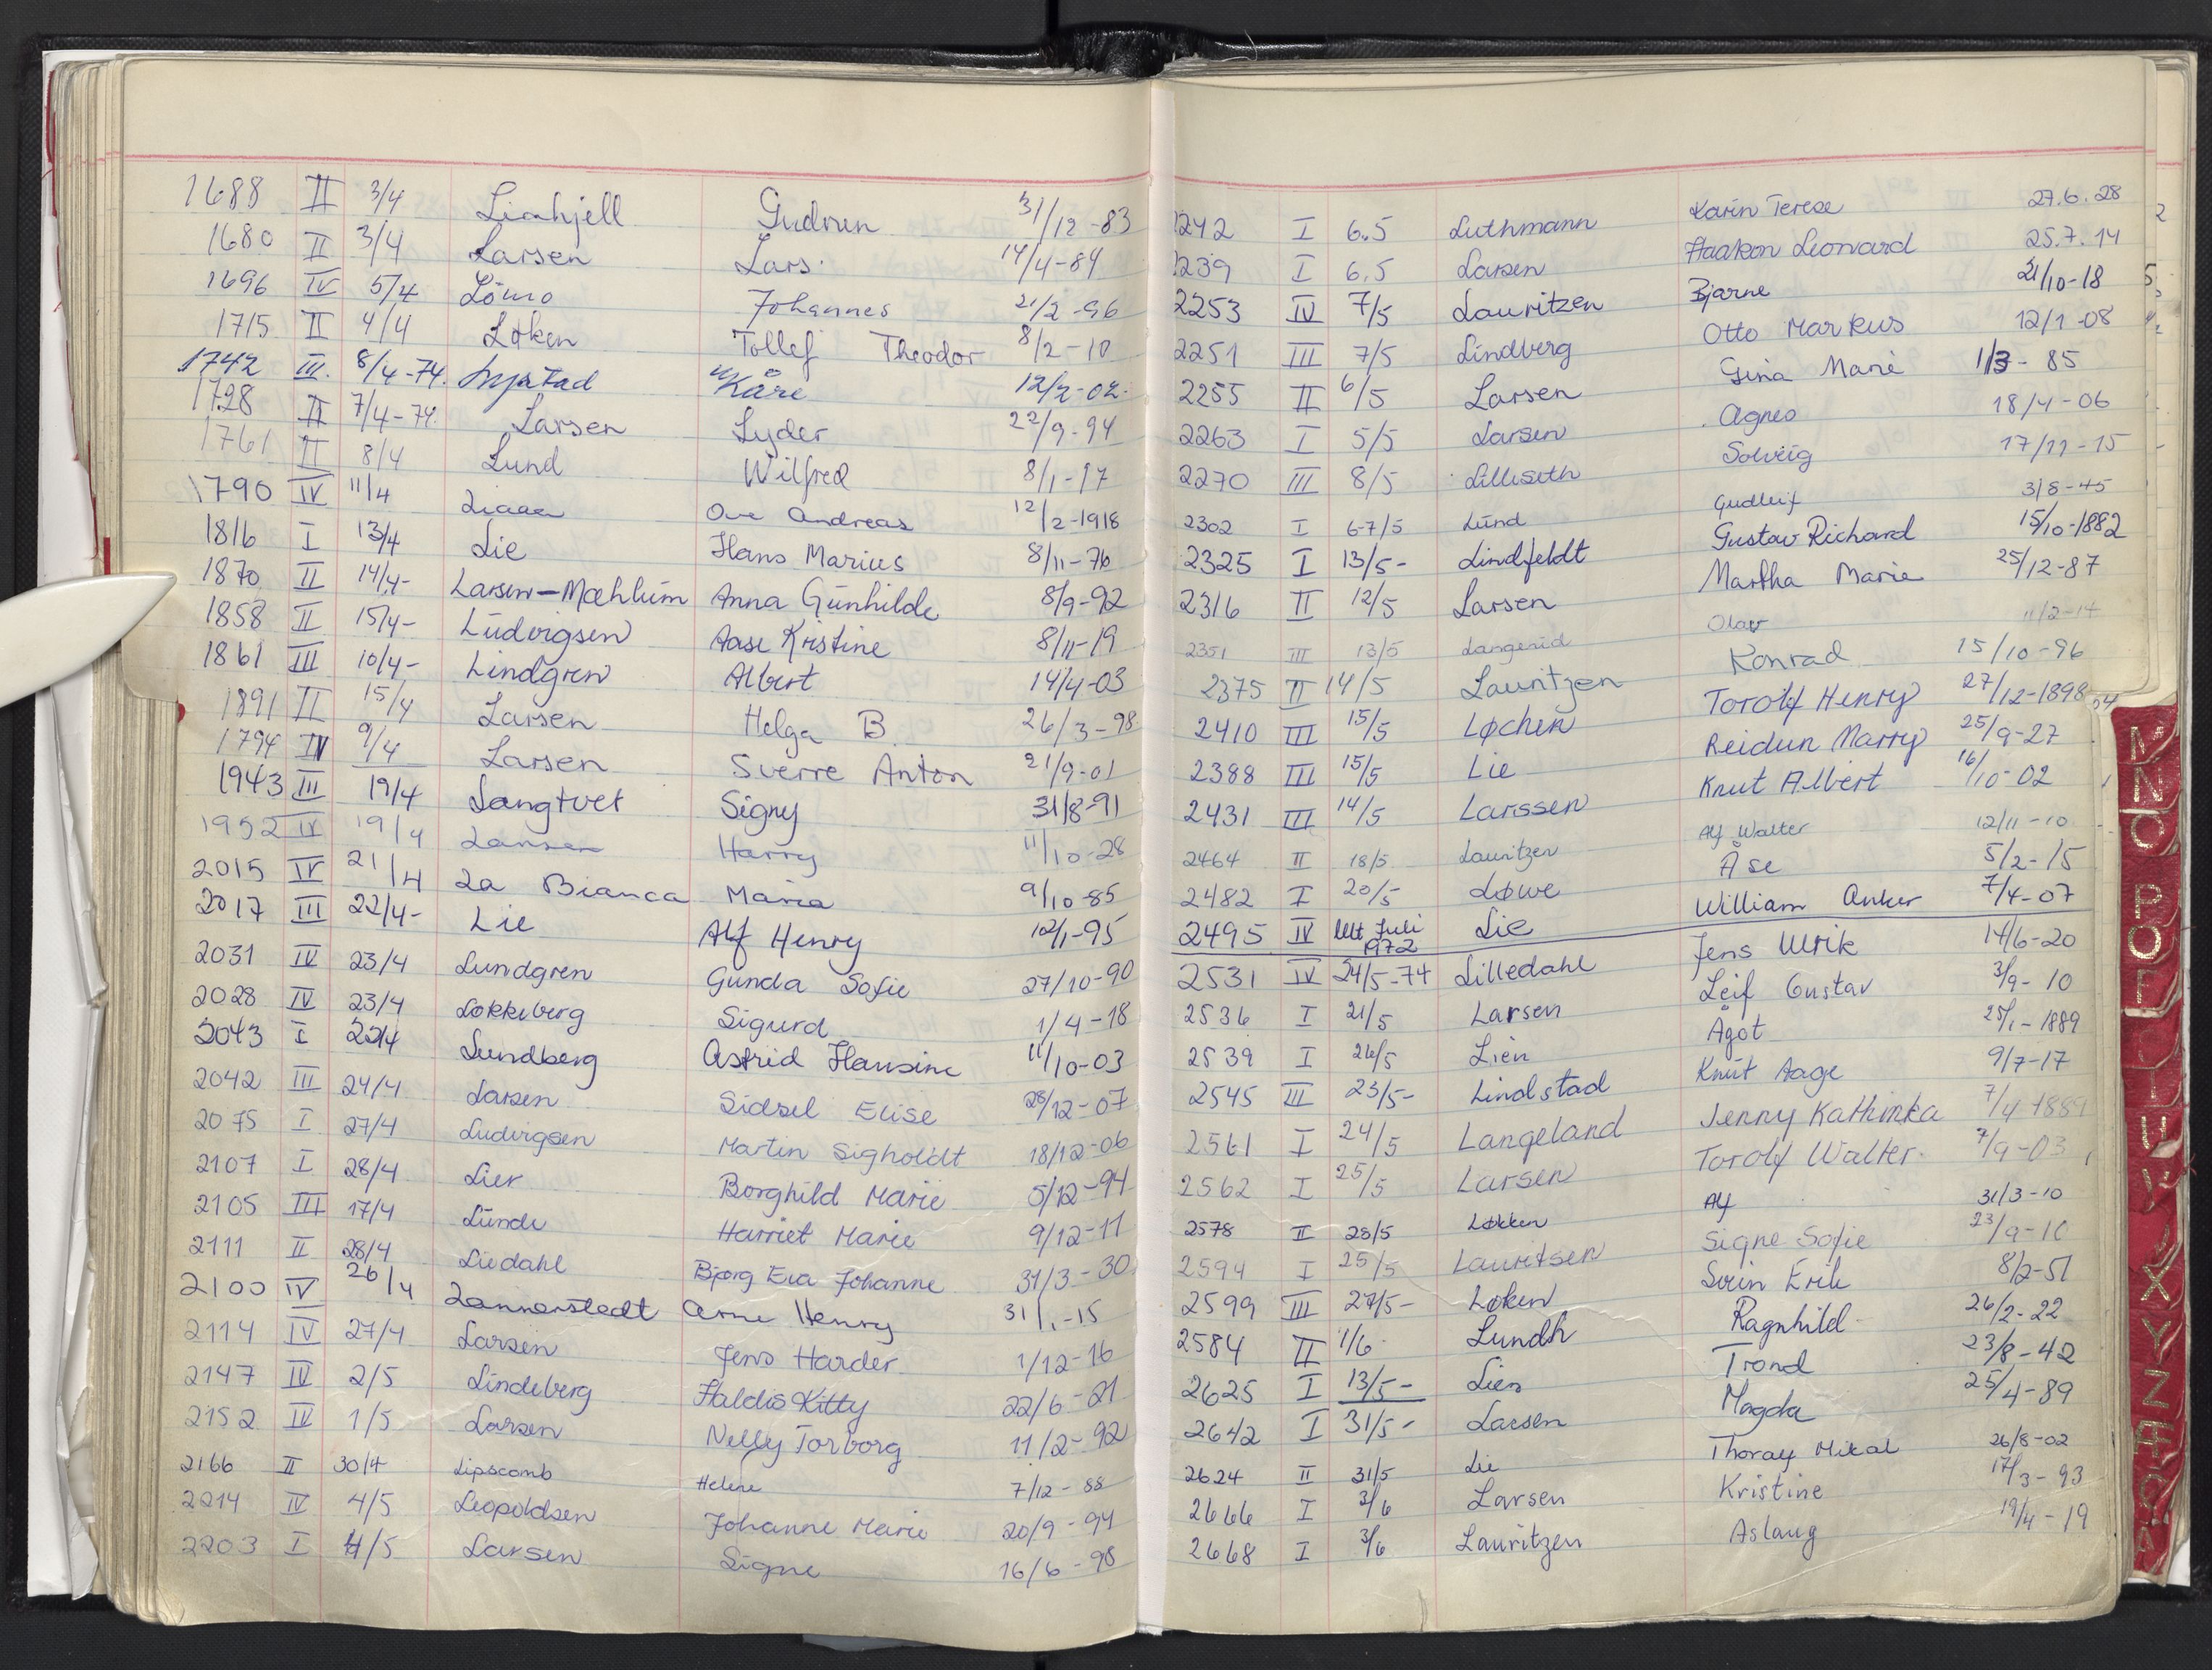 1688 II 3/4 Liahjell Gudrun 31/12-83
1680 II 3/4 Larsen Lars 14/4-84
1696 IV 5/4 Lömo Johannes 21/2-96
1715 II 4/4 Løken Tollef Theodor 8/2-10
1742 III. 8/4-74. Kåre 12/2-02.
1728 II 7/4-74. Larsen Lyder 22/9-94
1761 II 8/4 Lund Wilfred 8/1-17
1790 IV 11/4 Ove Andreas 12/2-1918
1816 I 13/4 Lie Hans Marius 8/11-76
1870 II 14/4- Larsen-Mæhlum Anna Gunhilde 8/9-92
1858 II 15/4- Ludvigsen Aase Kristine 8/11-19
1861 III 10/4- Lindgren Albert 14/4-03
1891 II 15/4 Larsen Helga B. 26/3-98
1794 IV 9/4 Larsen Sverre Anton 21/9-01
1943 III 19/4 Langtvet Signy 31/8-91
1952 IV 19/4 Larsen Harry 11/10-28
2015 IV 21/4 La Bianca Maria 9/10-85
2017 III 22/4- Lie Alf Henry 12/1-95
2031 IV 23/4 Lundgren Gunda Sofie 27/10-90
2028 IV 23/4 Løkkeberg Sigurd 1/4-18
2043 I 22/4 Lundberg Astrid Hansine 11/10-03
2042 III 24/4 Larsen Sidsel Elise 28/12-07
2075 I 27/4 Ludvigsen Martin Sigholdt 18/12-06
2107 I 28/4 Lier Borghild Marie 5/12-94
2105 III 17/4 Lunde Harriet Marie 9/12-11
2111 II 28/4 Liedahl Bjørg Eva Johanne 31/3-30
2100 IV 26/4 Lannerstedt Arne Henry 31/1-15
2114 IV 27/4 Larsen Jens Harder 1/12-16
2147 IV 2/5 Lindeberg Haldis Kitty 22/6-21
2152 IV 1/5 Larsen Nelly Torborg 11/2-92
2166 II 30/4 Lipscomb Helene 7/12-88
2214 IV 4/5 Leopoldsen Johanne Marie 20/9-94
2203 I 4/5 Larsen Signe 16/6-98
2242 I 6.5 Luthmann Karin Terese 27.6.28
2239 I 6.5 Larsen Haakon Leonard 25.7.14
2253 IV 7/5 Lauritzen Bjarne 21/10-18
2251 III 7/5 Lindberg Otto Markus 12/1-08
2255 II 6/5 Larsen Gina Marie 1/3-85
2263 I 5/5 Larsen Agnes 18/4-06
2270 III 8/5 Lilleseth Solveig 17/11-15
2302 I 6-7/5 Lund Gudleif 3/8-45
2325 I 13/5- Lindfeldt Gustav Richard 15/10-1882
2316 II 12/5 Larsen Martha Marie 25/12-87
2351 III 13/5 Langerud Olav 11/2-14
2375 II 14/5 Lauritzen Konrad 15/10-96
2410 III 15/5 Løchen Torolf Henry 27/12-1898
2388 III 15/5 Lie Reidun Marry 25/9-27
2431 III 14/5 Larssen Knut Albert 16/10-02
2464 II 18/5 Lauritzen Alf Walter 12/11-10
2482 I 20/5 Løwe Åse 5/2-15
2495 IV Utt Juli 1972 Lie William Anker 7/4-07
2531 IV 24/5-74 Lilledahl Jens Ulrik 14/6-20
2536 I 21/5 Larsen Leif Gustav 3/9-10
2539 I 26/5 Lien Ågot 25/1-1889
2545 III 23/5- Lindstad Knut Aage 9/7-17
2561 I 24/5 Langeland Jenny Kathinka 7/4-1889
2562 I 25/5 Larsen Torolf Walter. 7/9-03
2578 II 28/5 Løkken Alf 31/3-10
2594 I 25/5 Lauritsen Signe Sofie 23/9-10
2599 III 27/5- Løken Svein Erik 8/2-51
2584 II 1/6 Lundh Ragnhild 26/2-22
2625 I 13/5- Lien Trond 23/8-42
2642 I 31/5- Larsen Magda 25/4-89
2624 II 31/5 Lie Thoralf Mikal 26/8-02
2666 I 3/6 Larsen Kristine 17/3-93
2668 I 3/6 Lauritzen Aslaug 19/4-19
M
N
O
P
X
Y
Z
Æ
Ø